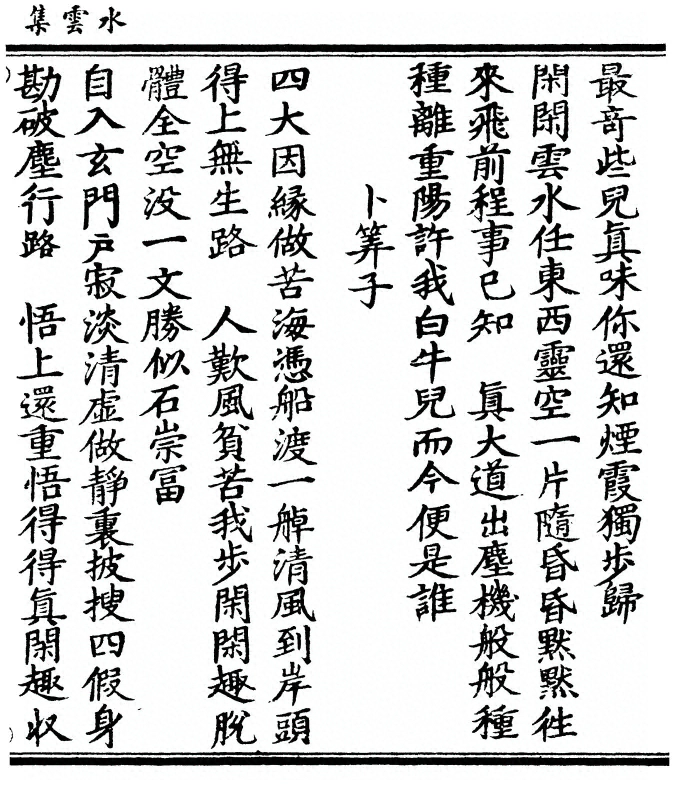 水雲集
最竒些兒眞味你還知煙霞獨步歸
閑閑雲水任東西靈空一片隨昏昏黙黙徃
來飛前程事已知　眞大道出塵機般般種
種離重陽許我白牛兒而今便是誰
卜筭子
四大因緣做苦海憑船渡一棹清風到岸頭
得上無生路　人歎風貧苦我步閑閑趣脫
體全空没一文勝似石崇冨
自入玄門戸寂淡清虛做靜裏披搜四假身
勘破塵行路　悟上還重悟得得眞閑趣収